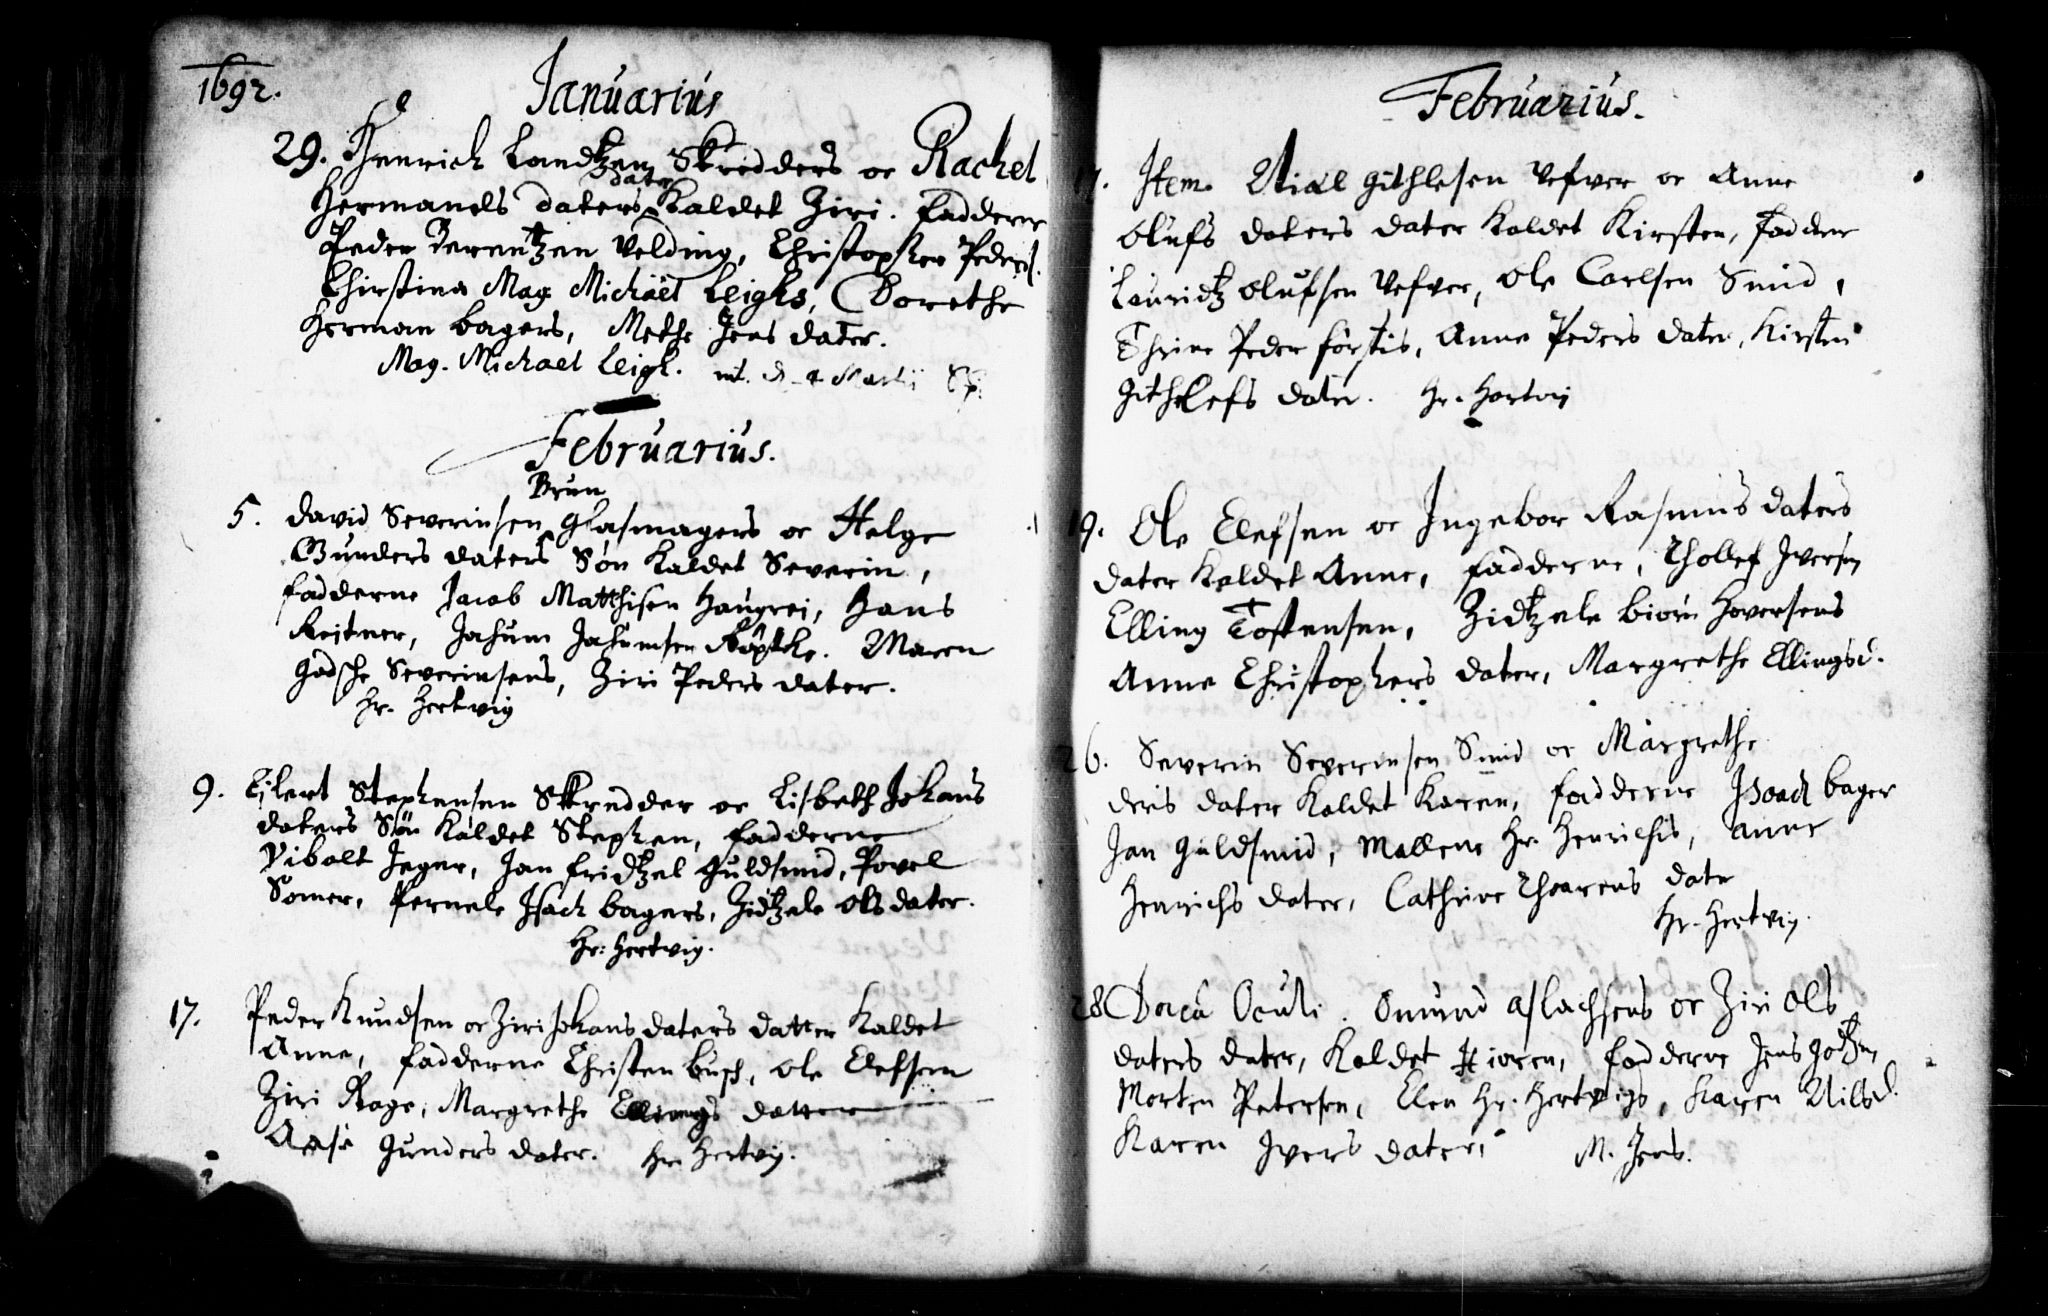 1692.
Januarius
29. Henrich Landtzen Skredders oc Rachel
dater
Hermands daters kaldet Ziri. fadderne
Peder Berentzen Velding, Christopher Peders.
Chirstina Mag Michael Leighs, Dorethe
Herman bagers, Methe Jens dater.
Mag. Michael Leigh.
Februarius.
Brun
5. David Severinsen Glasmagers oc Helge
Gunders daters Søn kaldet Severin,
fadderne Jacob Matthisen Haugrei, Hans
Reitner, Jochum Jochumsen. Maren
Severinsens, Ziri Peders dater.
Hr. Hertvig
9. Eilert Stephensen Skredder oc Lisbeth Johans
daters Søn kaldet Stephen, fadderne
Vibolt Jeger, Jan fridtzel Guldsmid, Povel
Somer, Pernele Isach bagers, Zidtzele Ols dater.
Hr: Hertvig.
17. Peder Knudsen oc Ziri Johans daters datter kaldet
Anne, fadderne Christen busch, Ole Elefsen
Ziri Roge, Margrethe Ellings datter
Aase Gunders dater. Hr. Hertvig.
Februarius.
17. Item. Niel Githlesen Vefver oc Anne
Olufs daters dater kaldet Kirsten, fadder
Lauridtz Olufsen Vefver, Ole Carlsen Smid,
Thrine Peder, Anne Peders dater, Kirsten
Githlefs dater. Hr. Hertvig
19. Ole Elefsen oc Ingebor Rasmus daters
dater kaldet Anne, fadderne, Thollef Iversen
Elling Tostensen, Zidtzele Biørn Hoversens
Anne Christophers dater, Margrethe Ellingsd.
26. Severin Severinsen Smid oc Margrethe
ders dater kaldet Karen, fadderne Isaach bager
Jan Guldsmid, Mallene Hr. Henrichs, Anne
Henrichs dater, Cathrine dater
Hr. Hertvig.
28 Doica Oculi. Omund Aslachsens oc Ziri Ols
daters dater, kaldet, fadderne Jens
Morten Petersen, Elen Hr. Hertvigs, Karen Nilsd.
Karen Ivers dater, M. Jens.